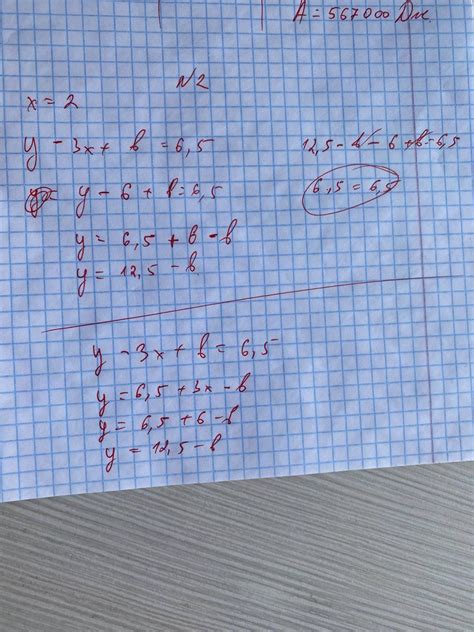 A = 567000 Дж.
N2
x = 2
y - 3x + b = 6,5
y - 6 + b = 6,5
y = 6,5 + 6 - b
y = 12,5 - b
12,5 - b - 6 + b = 6,5
6,5 = 6,5
y - 3x + b = 6,5
y = 6,5 + 3x - b
y = 6,5 + 6 - b
y = 12,5 - b